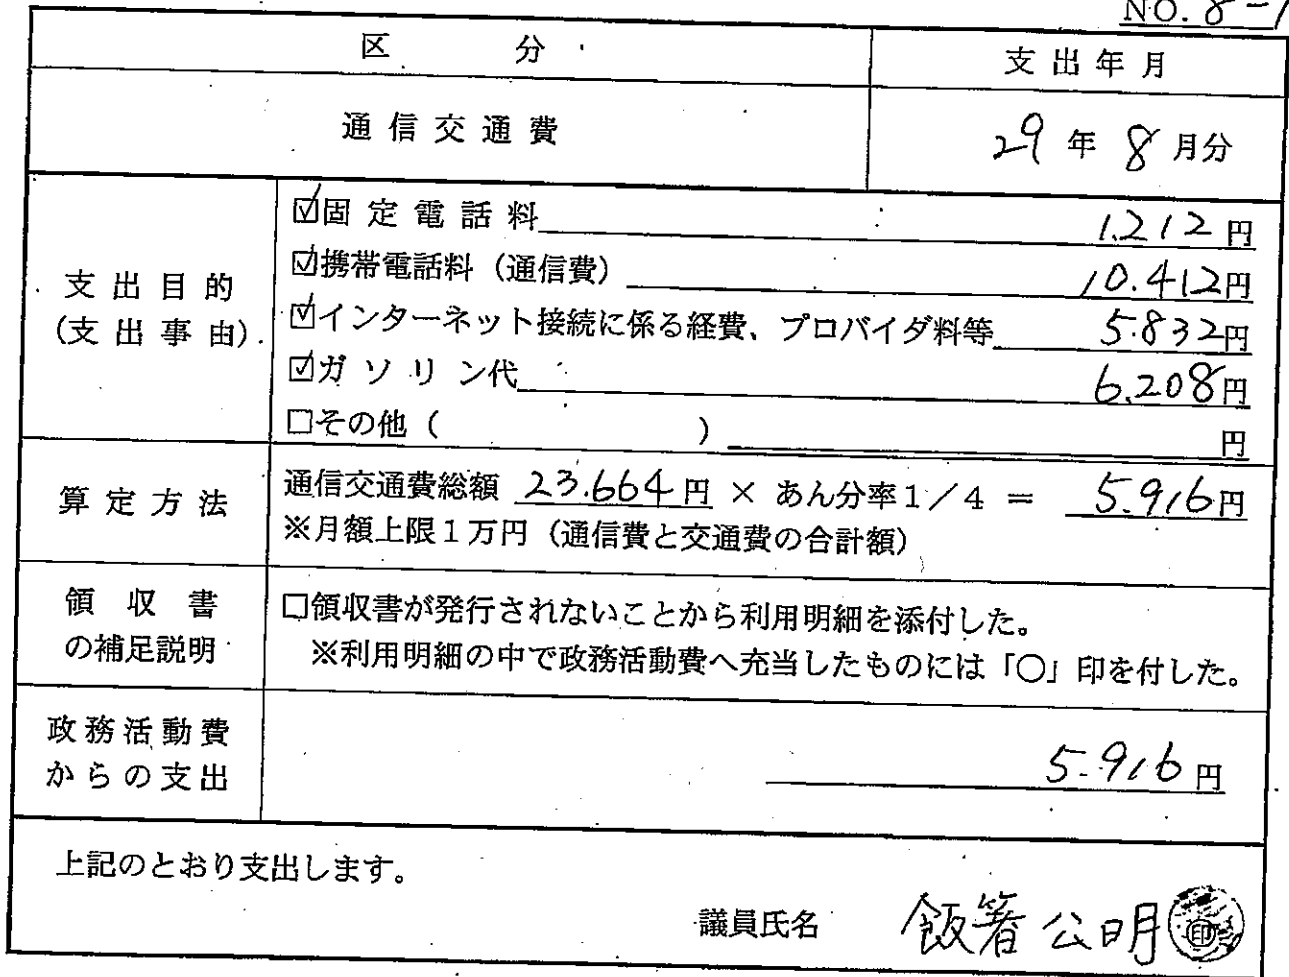 NO. 8-1
区分 支出年月
通信交通費 29年8月分
支出目的
(支出事由)
☑固定電話料 1.212円
☑携帯電話料（通信費） 10.412円
☑インターネット接続に係る経費、プロバイダ料等 5.832円
☑ガソリン代 6.208円
□その他（　　　　） 円
算定方法
通信交通費総額 23.664円 × あん分率1／4 ＝ 5.916円
※月額上限1万円（通信費と交通費の合計額）
領収書
の補足説明
□領収書が発行されないことから利用明細を添付した。
※利用明細の中で政務活動費へ充当したものには「○」印を付した。
政務活動費
からの支出
5.916円
上記のとおり支出します。
議員氏名 飯箸公明 印